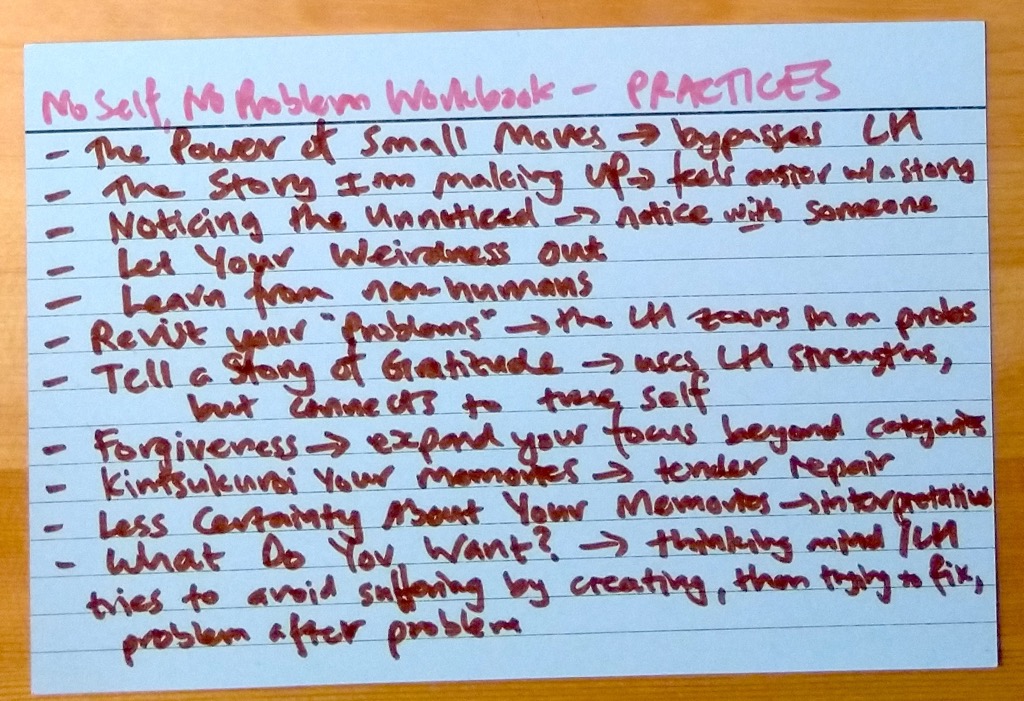 No Self, No Problem Workbook - PRACTICES
- The Power of Small Moves → bypasses LH
- The Story I'm Making UP → feels easier w/a story
- Noticing the Unnoticed → notice with someone
- Let Your Weirdness out
- Learn from non-humans
- Revisit your "Problems" → the LH zooms in on probs
- Tell a Story of Gratitude → uses LH strengths,
but connects to true self
- Forgiveness → expand your focus beyond categories
- Kintsukuroi Your Memories → tender repair
- Less Certainty About Your Memories → interpretation
- What Do You Want? → thinking mind/LH
tries to avoid suffering by creating, then trying to fix,
problem after problem